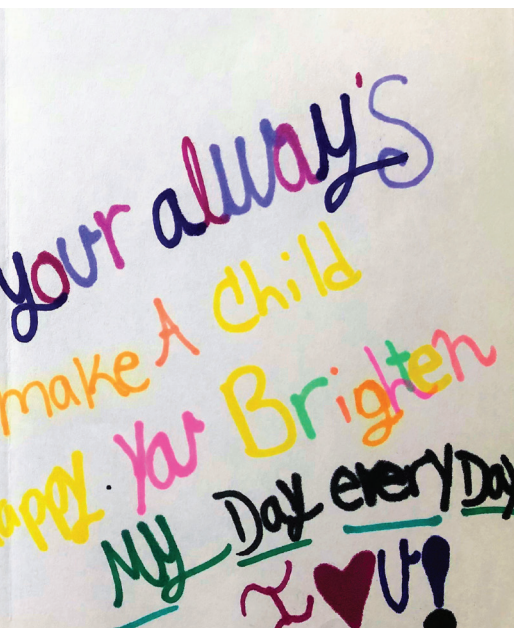 your alway's
make A child
appy. You Brighten
My Day every Day
I ♥ U!